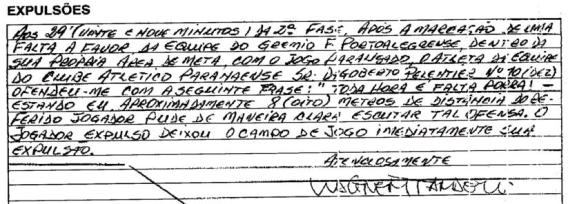 EXPULSÕES
AOS 29' (VINTE E NOVE MINUTOS) DA 2ª FASE, APÓS A MARCAÇÃO DE UMA
FALTA A FAVOR DA EQUIPE DO GREMIO F. PORTOALEGRENSE, DENTRO DA
SUA PROPRIA AREA DE META, COM O JOGO PARALISADO, O ATLETA DA EQUIPE
DO CLUBE ATLETICO PARANAENSE SR. DAGOBERTO PELENTIER Nº 10 (DEZ)
OFENDEU-ME COM A SEGUINTE FRASE: "TODA HORA É FALTA PORRA! —
ESTANDO EU APROXIMADAMENTE 8 (OITO) METROS DE DISTÂNCIA DO RE-
FERIDO JOGADOR PUDE DE MANEIRA CLARA ESCUTAR TAL OFENSA. O
JOGADOR EXPULSO DEIXOU O CAMPO DE JOGO IMEDIATAMENTE SUA
EXPULSÃO.
ATENCIOSAMENTE
WAGNER TARDELLI